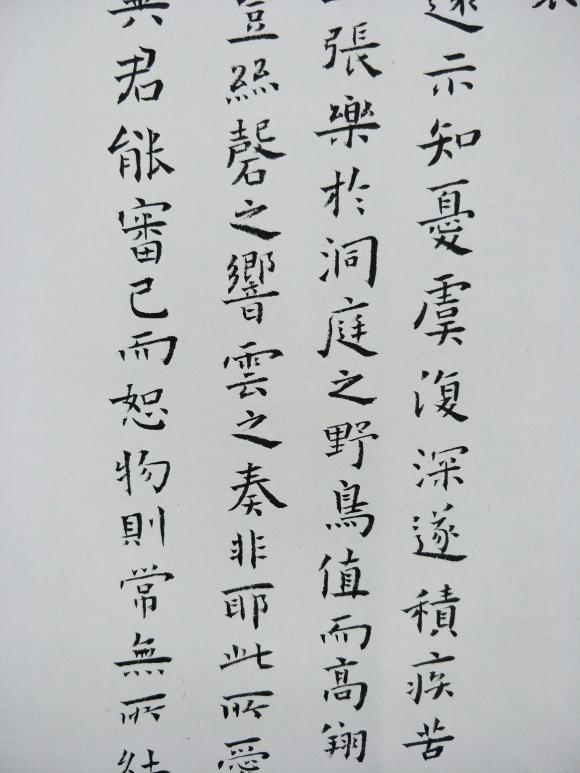 示知憂虞復深遂積疾苦
張樂於洞庭之野鳥值而高翔
豈絲磬之響雲之奏非耶此所愛
君能審己而恕物則常無所